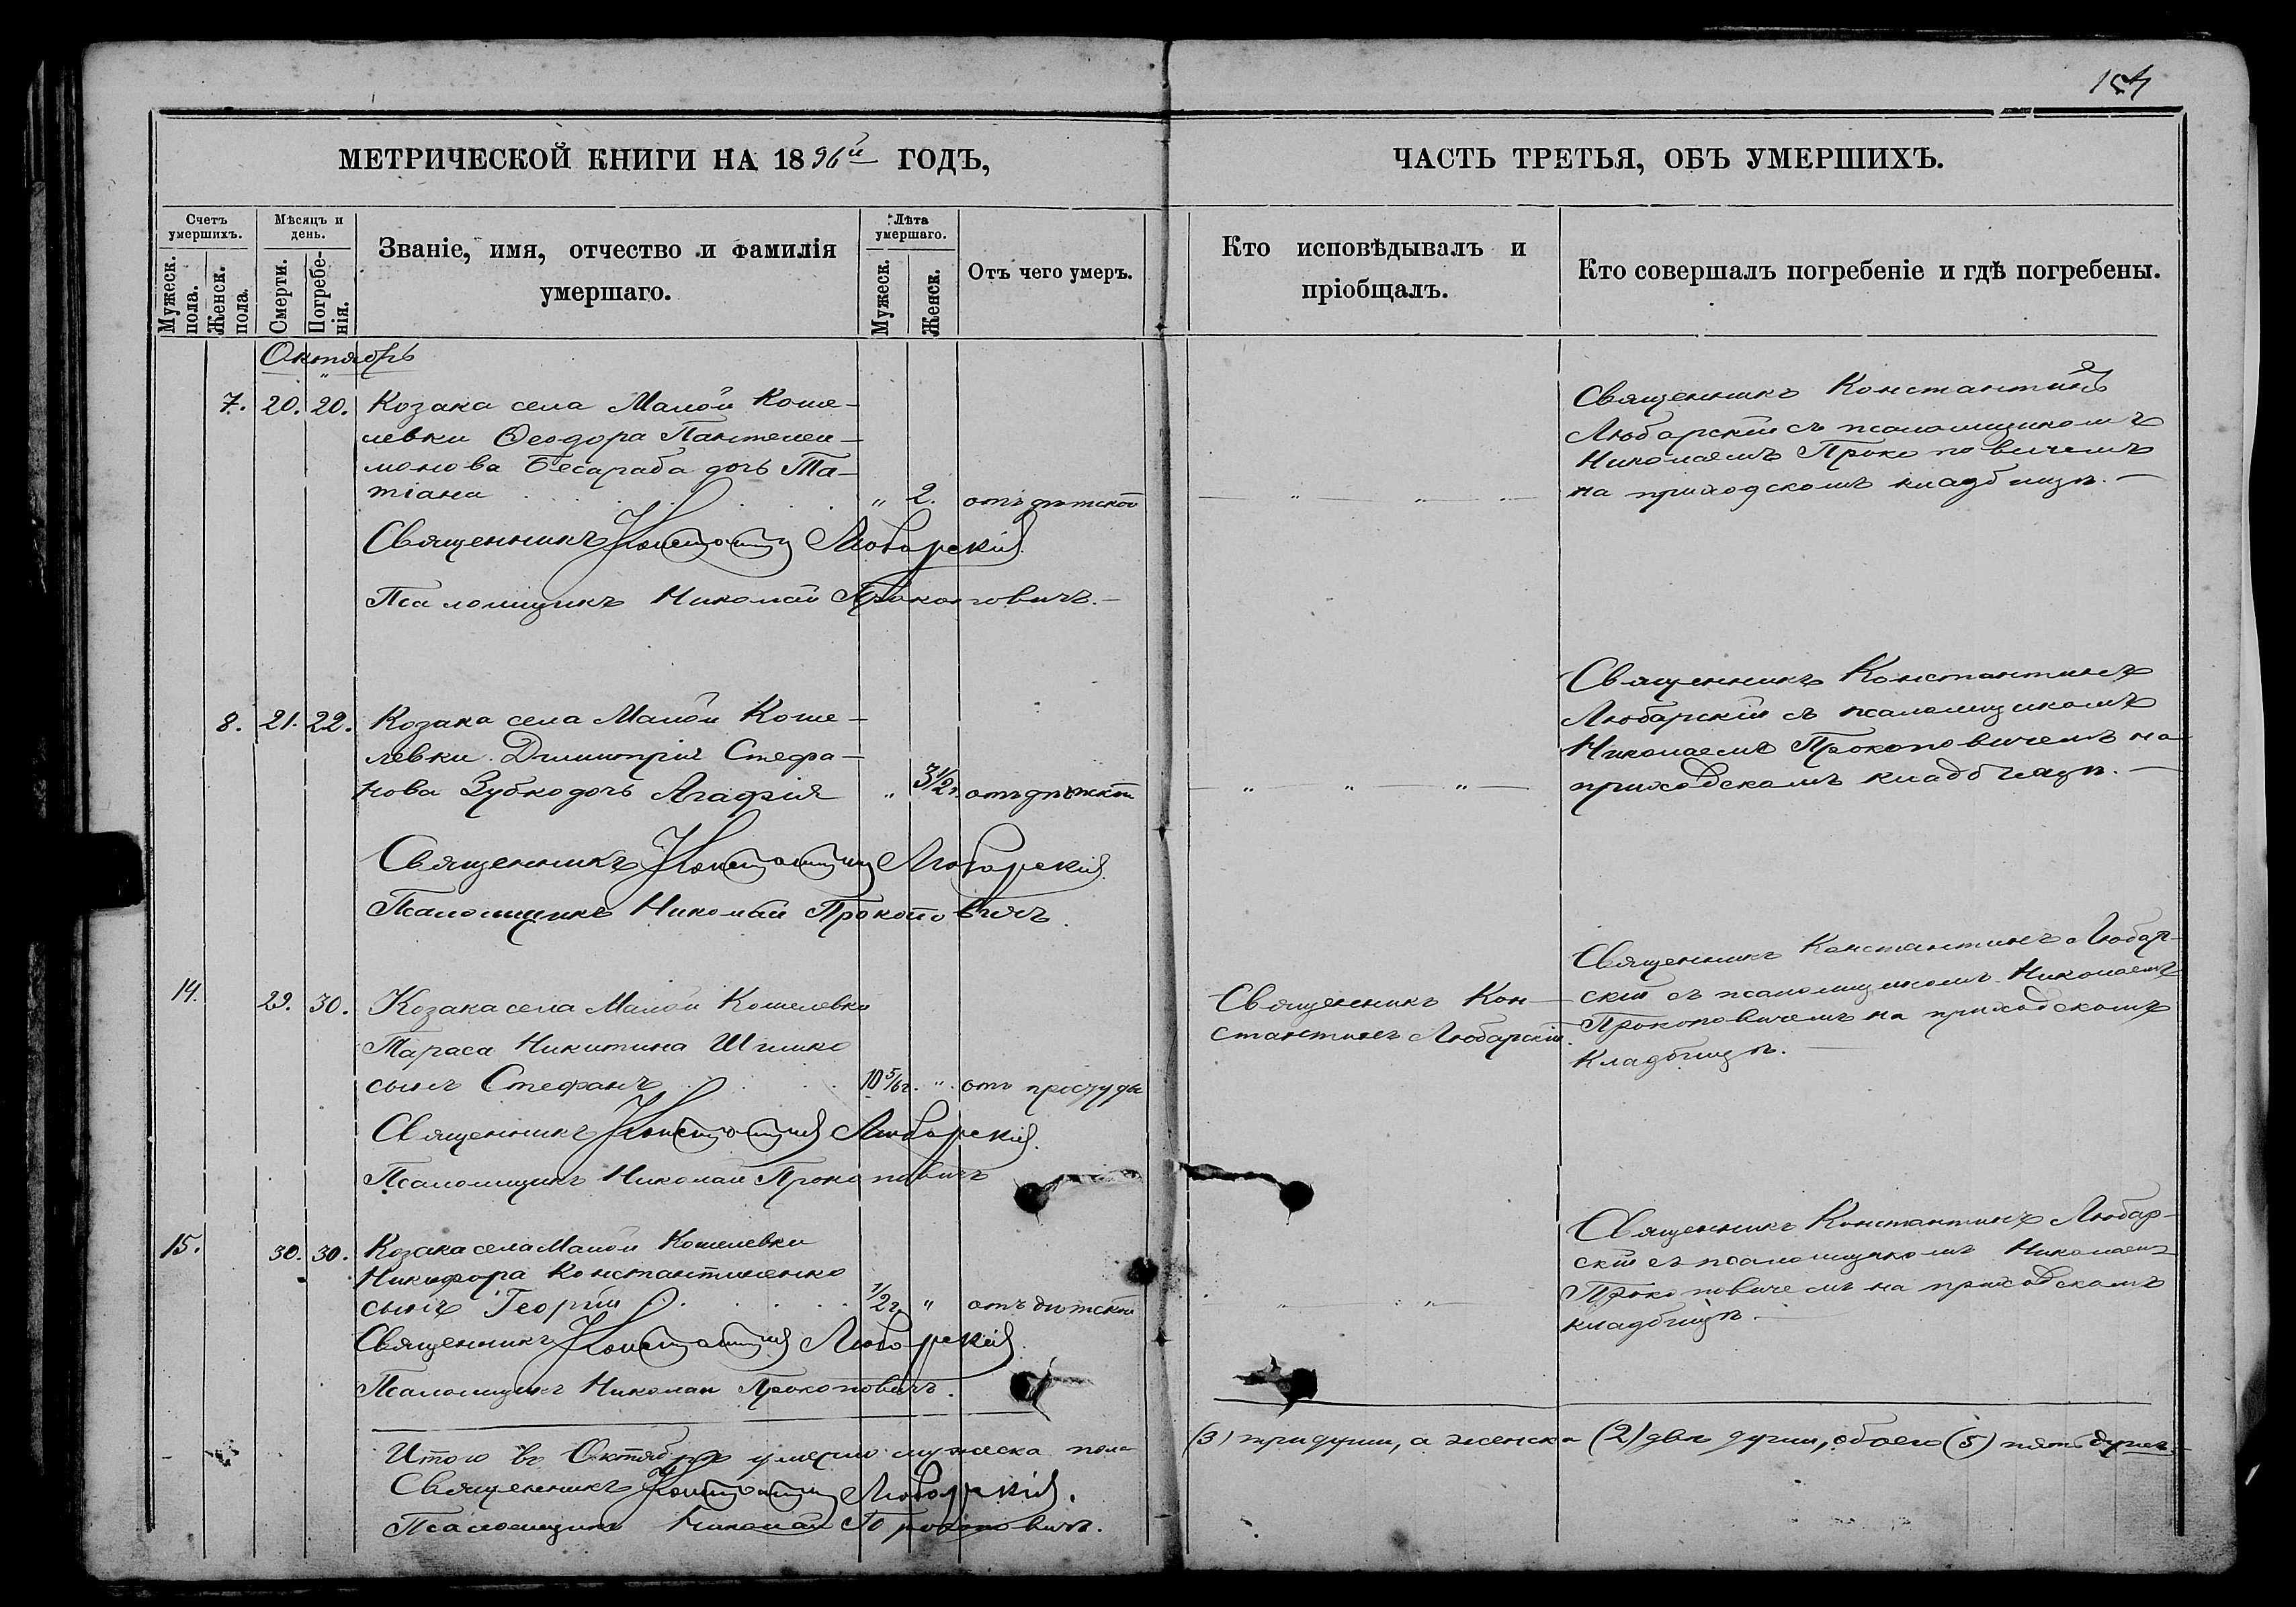 154
МЕТРИЧЕСКОЙ КНИГИ НА 1896й ГОДЪ,
ЧАСТЬ ТРЕТЬЯ, ОБЪ УМЕРШИХЪ.
Счетъ умершихъ.
Мужеск. пола.
Женск. пола.
Мѣсяцъ и день.
Смерти.
Погребенія.
Званіе, имя, отчество и фамилія
умершаго.
Лѣта умершаго.
Мужеск.
Женск.
Отъ чего умеръ.
Кто исповѣдывалъ и
пріобщалъ.
Кто совершалъ погребеніе и гдѣ погребены.
Октябрь
7. 20. 20. Козака села Малой Коше-
левки Ѳеодора Пантелеи-
монова Бесараба дочь Та-
тіана " 2. отъ дѣтской
Священникъ Константинъ
Любарскій съ псаломщикомъ
Николаемъ Прокоповичемъ
на приходскомъ кладбищѣ.
Священникъ Константинъ Любарскій.
Псаломщикъ Николай Прокоповичъ.
8. 21. 22. Козака села Малой Коше-
левки Димитрія Стефа-
нова Зубко дочь Агафія " 3½ г. отъ дѣтской
Священникъ Константинъ
Любарскій съ псаломщикомъ
Николаемъ Прокоповичемъ на
приходскомъ кладбищѣ.
Священникъ Константинъ Любарскій.
Псаломщикъ Николай Прокоповичъ.
14. 29. 30. Козака села Малой Кошелевки
Тараса Никитина Шишко
сынъ Стефанъ 10 5/6 г. " отъ простуды
Священникъ Кон-
стантинъ Любарскій.
Священникъ Константинъ Любар-
скій съ псаломщикомъ Николаемъ
Прокоповичемъ на приходскомъ
кладбищѣ.
Священникъ Константинъ Любарскій.
Псаломщикъ Николай Прокоповичъ
15. 30. 30. Козака села Малой Кошелевки
Никифора Константиненко
сынъ Георгій ½ г. " отъ дѣтской
Священникъ Константинъ Любар-
скій съ псаломщикомъ Николаемъ
Прокоповичемъ на приходскомъ
кладбищѣ.
Священникъ Константинъ Любарскій.
Псаломщикъ Николай Прокоповичъ.
Итого въ Октябрѣ умерло мужеска пола (3) три души, а женска (2) двѣ души, обоего (5) пять душъ.
Священникъ Константинъ Любарскій.
Псаломщикъ Николай Прокоповичъ.